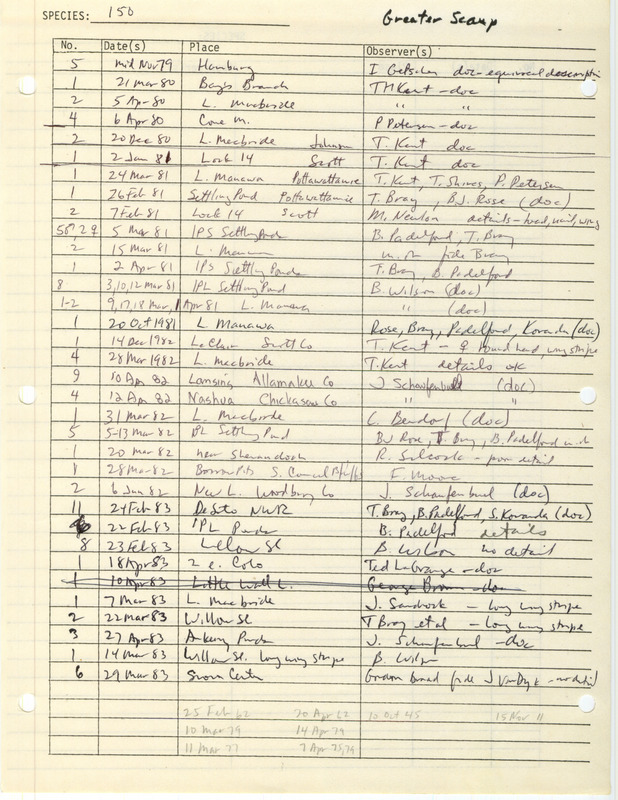 SPECIES: 150 Greater Scaup
No. Date(s) Place Observer(s)
5 mid Nov 79 Hamburg I Getscher doc-equivocal description
1 21 Mar 80 Bays Branch TH Kent - doc
2 5 Apr 80 L. Macbride " "
4 6 Apr 80 Cone M. P Petersen - doc
2 20 Dec 80 L. Macbride Johnson T. Kent doc
1 2 Jan 81 Lock 14 Scott T. Kent doc
1 24 Mar 81 L. Manawa Pottawattamie T. Kent, T. Shires, P. Petersen
1 26 Feb 81 Settling Pond Pottawattamie T. Bray, B.J. Rose (doc)
2 7 Feb 81 Lock 14 Scott M. Newlon details - head, nail, wing
5♂, 2♀ 5 Mar 81 IPS Settling Ponds B. Padelford, T. Bray
2 15 Mar 81 L. Manawa fide Bray
1 2 Apr 81 IPS Settling Ponds T. Bray, B. Padelford
8 3,10,12 Mar 81 IPL Settling Pond B. Wilson (doc)
1-2 9,17,18 Mar, 1 Apr 81 L. Manawa " (doc)
1 20 Oct 1981 L. Manawa Rose, Bray, Padelford, Kovanda (doc)
1 14 Dec 1982 LeClair Scott Co T. Kent - ♀ round head, wing stripe
4 28 Mar 1982 L. Macbride T. Kent details ok
9 10 Apr 82 Lansing Allamakee Co J Schaufenbuel (doc)
4 12 Apr 82 Nashua Chickasaw Co " "
1 31 Mar 82 L. Macbride C. Bendorf (doc)
5 5-13 Mar 82 IPL Settling Pond BJ Rose, T. Bray, B. Padelford
1 20 Mar 82 near Shenandoah R. Silcock - poor detail
8 28 Mar 82 Borrow Pits S. Council Bluffs F. Moore
2 6 Jan 82 New L. Woodbury Co J. Schaufenbuel (doc)
11 24 Feb 83 DeSoto NWR T. Bray, B. Padelford, S. Kovanda (doc)
22 Feb 83 IPL Ponds B. Padelford details
8 23 Feb 83 Willow Sl B. Wilson no detail
1 18 Apr 83 2 e. Colo Ted LaGrange - doc
1 10 Apr 83 Little Wall L. George Brown - doc
1 7 Mar 83 L. Macbride J. Sandrock - long wing stripe
2 22 Mar 83 Willow Sl T Bray et al - long wing stripe
3 27 Apr 83 Ankeny Ponds J. Schaufenbuel - doc
1 14 Mar 83 Willow Sl. long wing stripe B. Wilson
6 29 Mar 83 Swan Center Gordon Brand fide J VanDyk - no detail
25 Feb 62 20 Apr 62 10 Oct 45 15 Nov 11
10 Mar 79 14 Apr 79
11 Mar 77 7 Apr 75,79